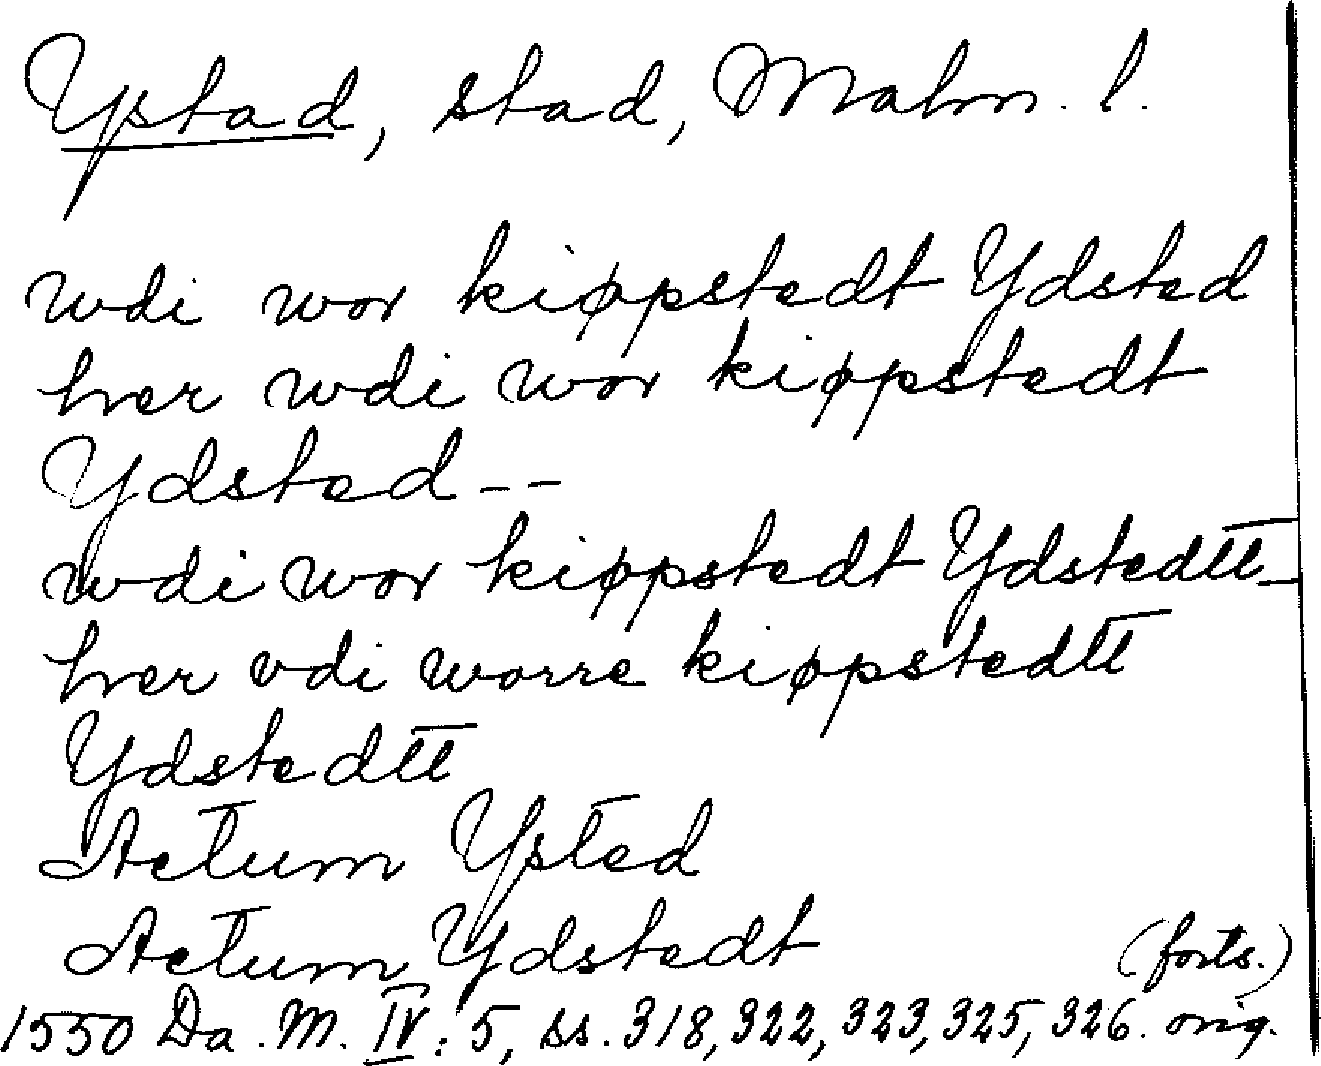 Ystad, stad, Malm. l.
wdi wor kiøpstedt Ydsted
her wdi wor kiøpstedt
Ydsted --
wdi wor kiøpstedt Ydstedtt -
her vdi worre kiøpstedtt
Ydstedtt
Actum Ysted
Actum Ydstedt (forts.)
1550 Da. M. IV: 5, ss. 318, 322, 323, 325, 326. orig.